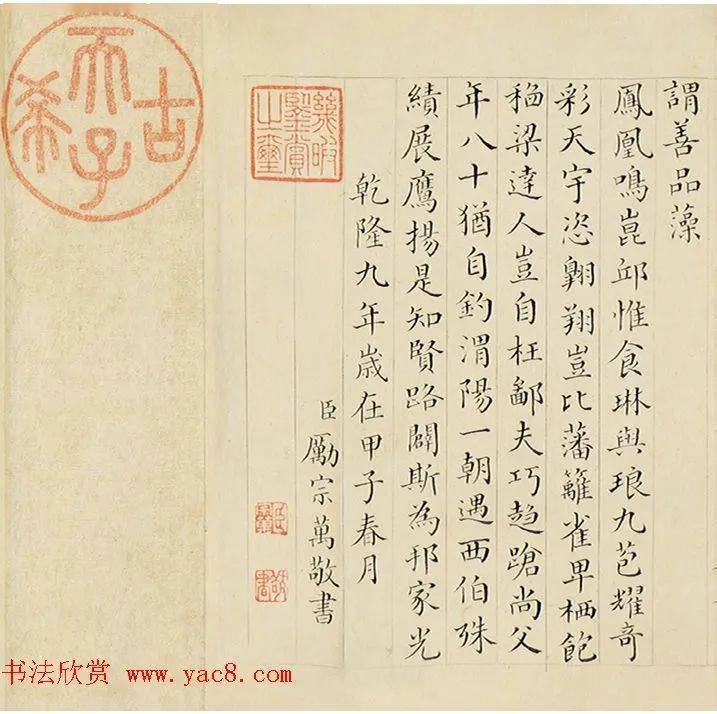 謂善品藻
鳳凰鳴崑邱惟食琳與琅九苞耀奇
彩天宇恣翺翔豈比藩籬雀卑栖飽
稻梁達人豈自枉鄙夫巧趨蹌尚父
年八十猶自釣渭陽一朝遇西伯殊
績展鷹揚是知賢路闢斯為邦家光
乾隆九年歲在甲子春月
臣勵宗萬敬書
幾暇鑒賞之璽
古希天子
书法欣赏 www.yac8.com